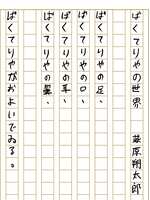 ばくてりやの世界　萩原朔太郎
ばくてりやの足、
ばくてりやの口、
ばくてりやの耳、
ばくてりやの鼻、
ばくてりやがおよいでゐる。